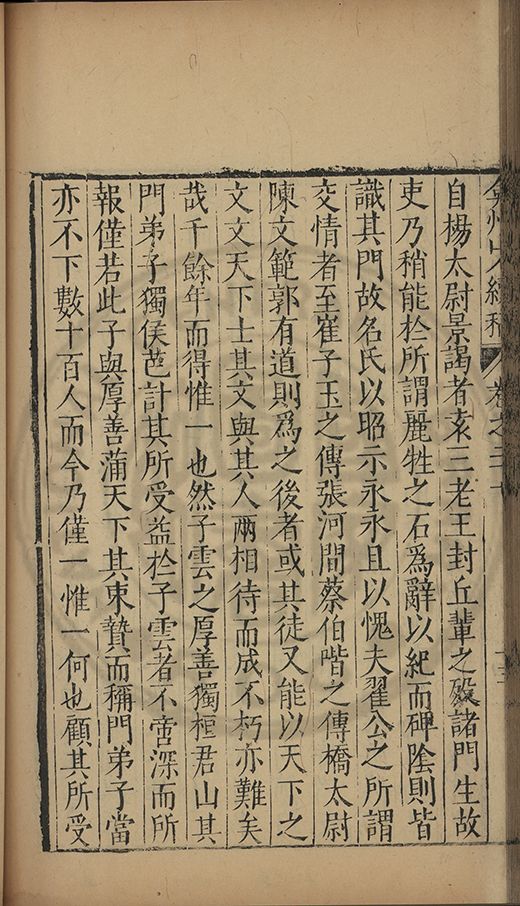 弇州山人續稿 卷之二十 十三
自楊太尉景謁者袁三老王封丘輩之歿諸門生故
吏乃稍能於所謂麗牲之石爲辭以紀而碑陰則皆
識其門故名氏以昭示永永且以愧夫翟公之所謂
交情者至崔子玉之傳張河間蔡伯喈之傳橋太尉
陳文範郭有道則爲之後者或其徒又能以天下之
文文天下士其文與其人兩相待而成不朽亦難矣
哉千餘年而得惟一也然子雲之厚善獨桓君山其
門弟子獨侯芭計其所受益於子雲者不啻深而所
報僅若此子與厚善蒲天下其束贄而稱門弟子當
亦不下數十百人而今乃僅一惟一何也顧其所受